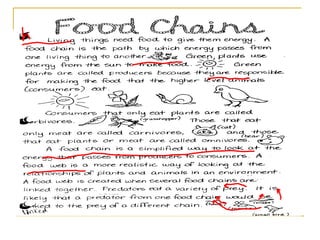 Food Chains
Living things need food to give them energy. A
food chain is the path by which energy passes from
one living thing to another. Green plants use
energy from the sun to make food. Green
plants are called producers because they are responsible
for making the food that the higher level animals
(consumers) eat.
Consumers that only eat plants are called
herbivores. (grasshopper) Those that eat
only meat are called carnivores, (cat) and those
that eat plants or meat are called omnivores. (bear)
A food chain is a simplified way to look at the
energy that passes from producers to consumers. A
food web is a more realistic way of looking at the
relationships of plants and animals in an environment.
A food web is created when several food chains are
linked together. Predators eat a variety of prey. It is
likely that a predator from one food chain would be
linked to the prey of a different chain.
linked (small bird)